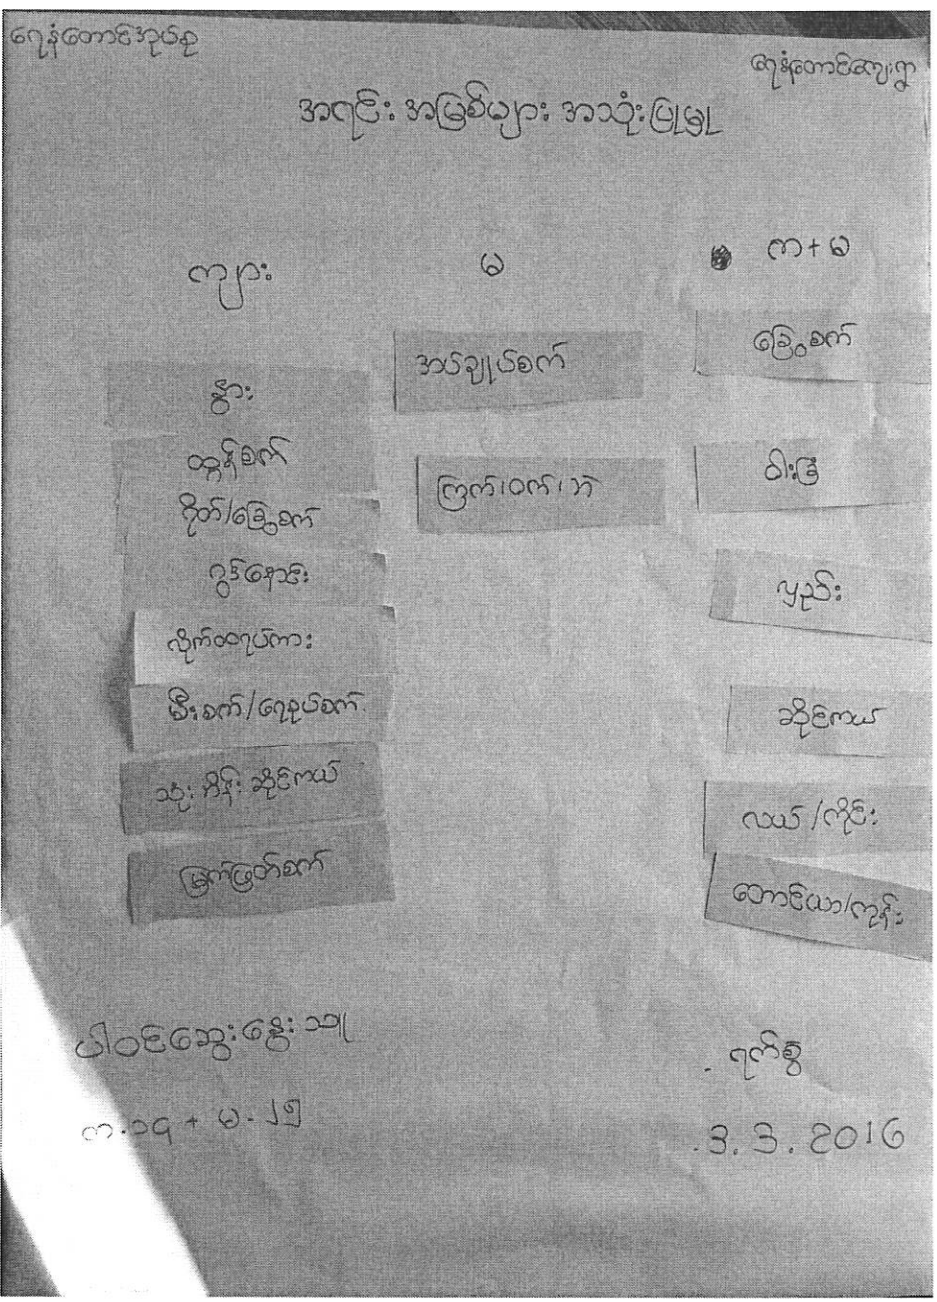 ရေနံတောင်အုပ်စု
ရေနံတောင်ကျေးရွာ
အရင်း အမြစ်များ အသုံးပြုမှု
ကျား
မ
က+မ
နွား
ထွန်စက်
ဂိုတ်/ခြွေစက်
ဂွဒ်နောင်း
လိုက်ထရပ်ကား
မီးစက်/ရေစုပ်စက်
သုံးဘိန်း ဆိုင်ကယ်
မြက်ဖြတ်စက်
အပ်ချုပ်စက်
ကြက်၊ဝက်၊ဘဲ
ခြွေစက်
ဝါးခြံ
လှည်း
ဆိုင်ကယ်
လယ်/ကိုင်း
တောင်ယာ/ကုန်း
ပါဝင်ဆွေးနွေးသူ
က.၁၄ + မ-၂၅
ရက်စွဲ
3.3.2016